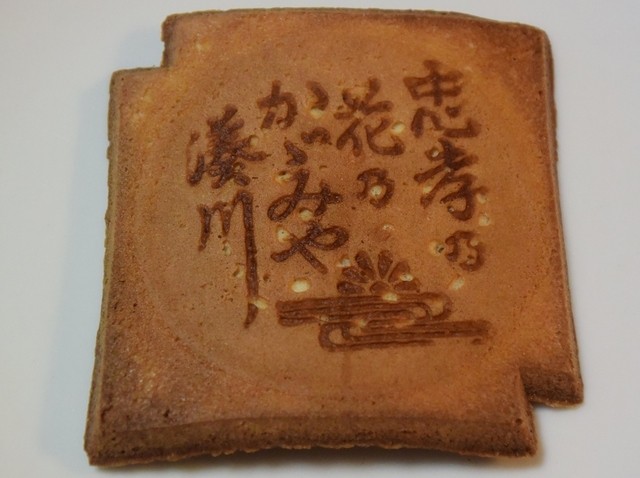 忠孝乃
花乃
かゞみや
湊川